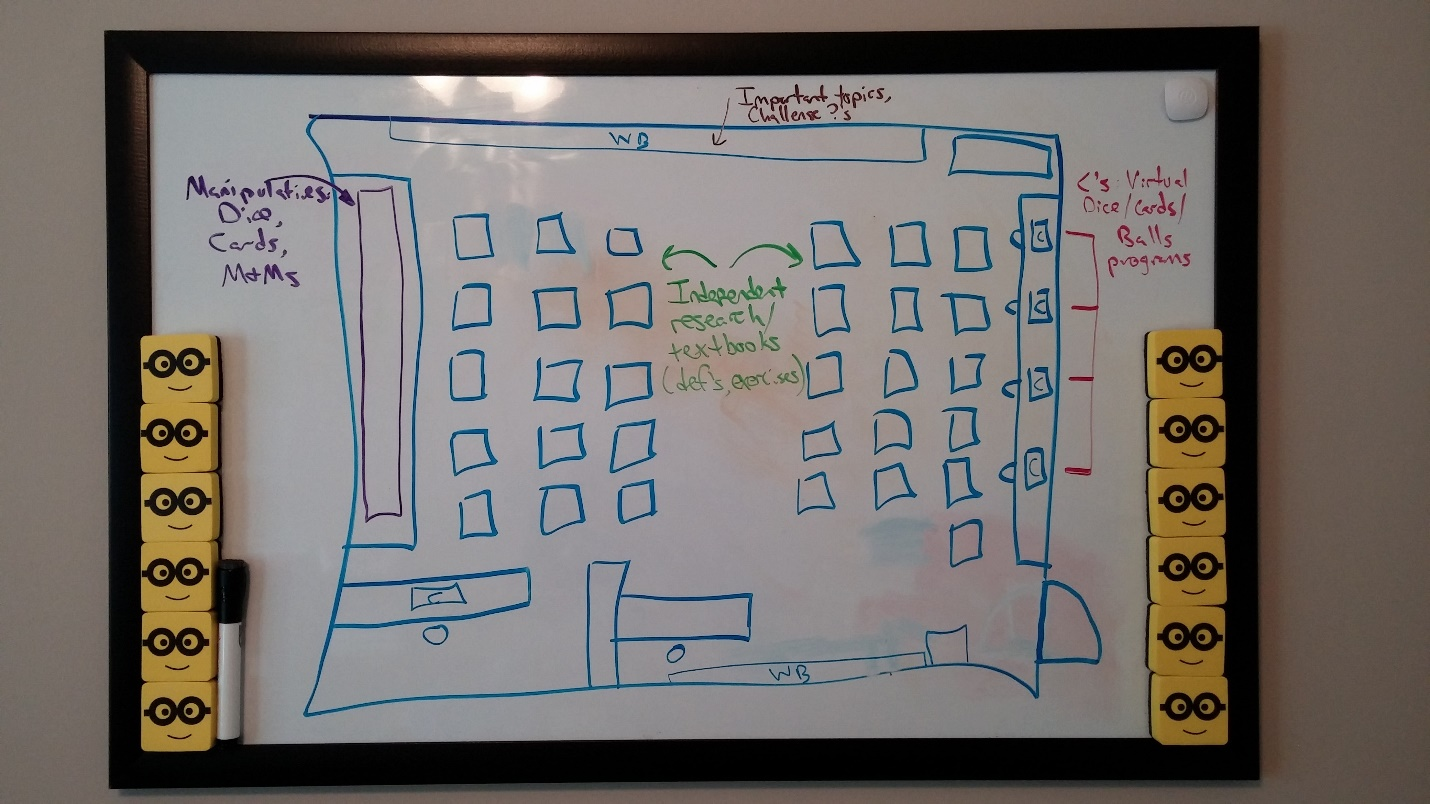 Important topics,
Challenge ?'s
WB
Manipulaties:
Dice,
Cards,
M+Ms
C's: Virtual
Dice/Cards/
Balls
programs
C
C
C
C
Independent
research/
textbooks
(def's, exercises)
C
WB